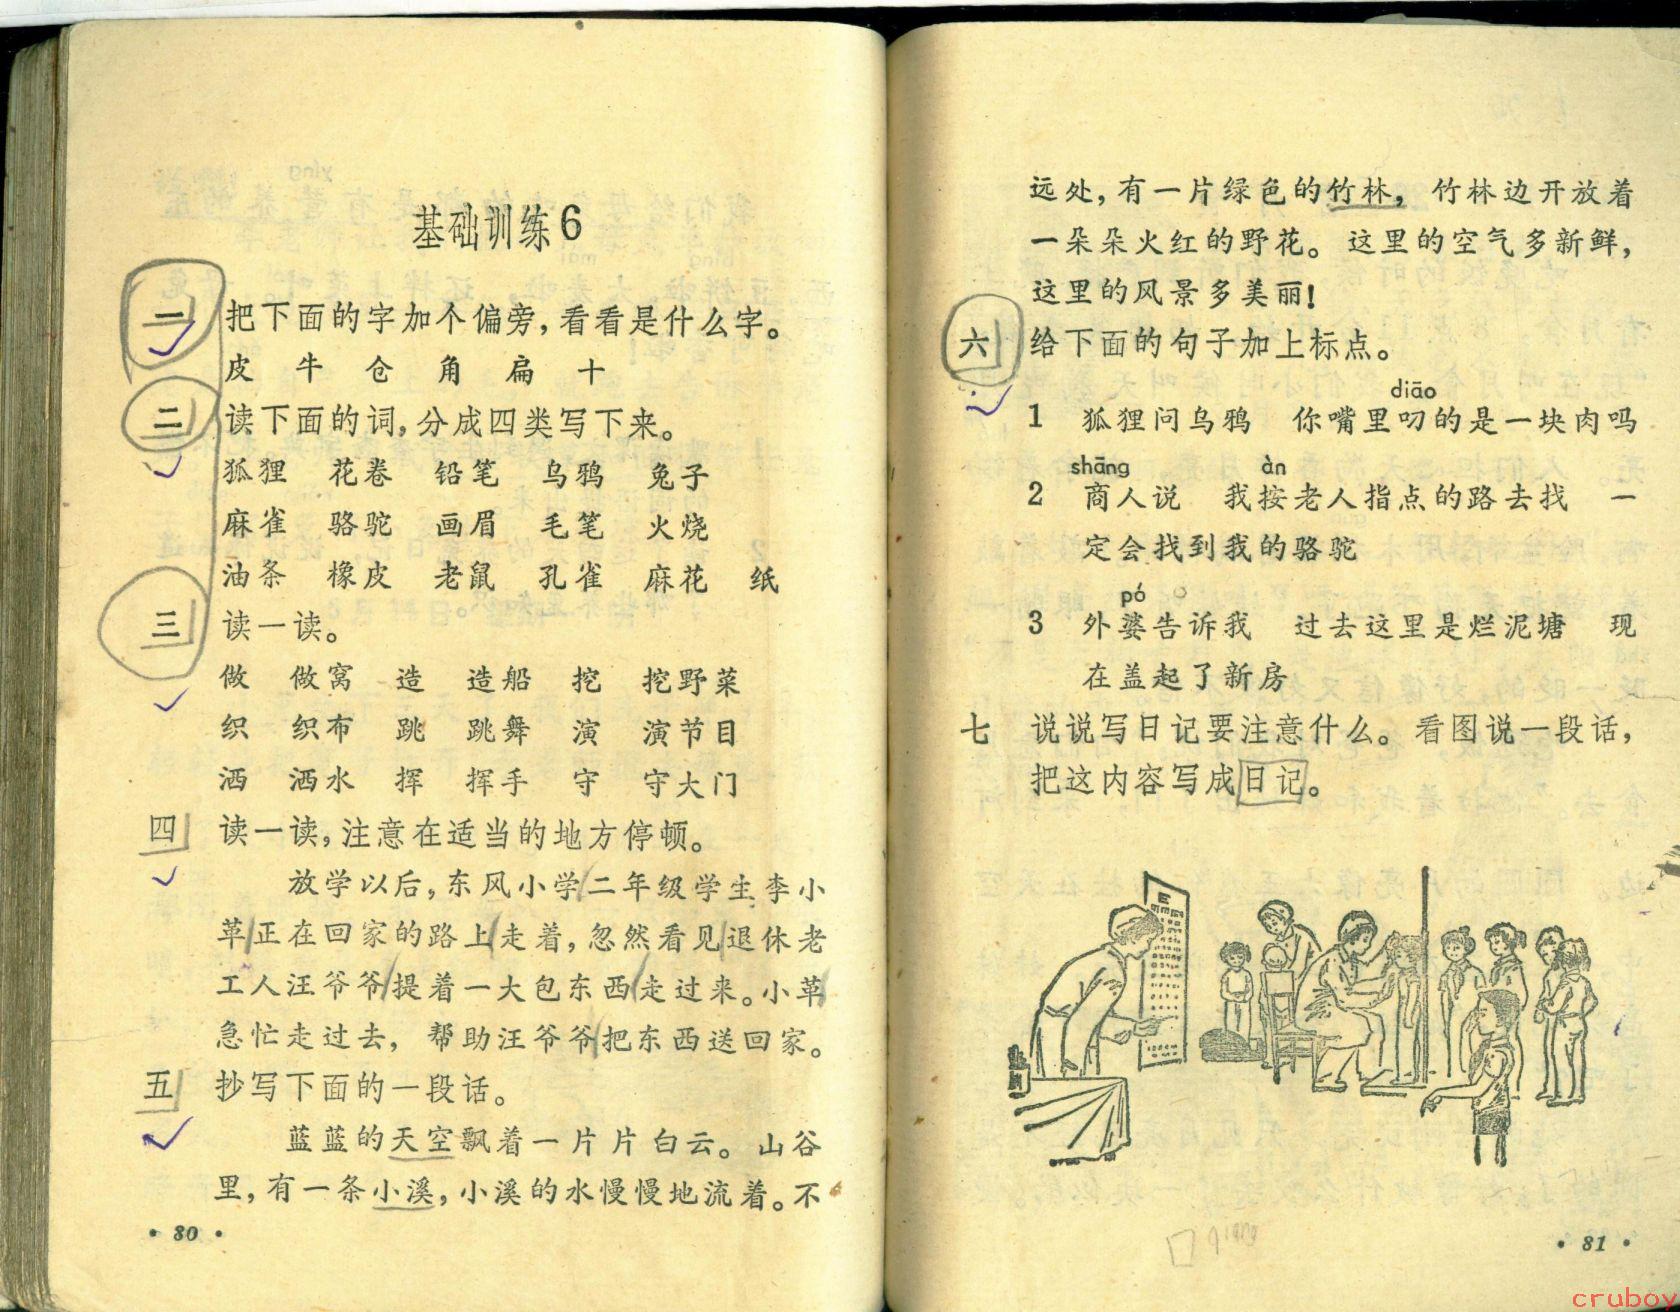 基础训练6
一 把下面的字加个偏旁，看看是什么字。
皮 牛 仓 角 扁 十
二 读下面的词，分成四类写下来。
狐狸 花卷 铅笔 乌鸦 兔子
麻雀 骆驼 画眉 毛笔 火烧
油条 橡皮 老鼠 孔雀 麻花 纸
三 读一读。
做 做窝 造 造船 挖 挖野菜
织 织布 跳 跳舞 演 演节目
洒 洒水 挥 挥手 守 守大门
四 读一读，注意在适当的地方停顿。
放学以后，东风小学/二年级学生李小
革/正在回家的路上/走着，忽然看见/退休老
工人汪爷爷/提着一大包东西/走过来。小革/
急忙走过去，帮助汪爷爷/把东西送回家。
五 抄写下面的一段话。
蓝蓝的天空飘着一片片白云。山谷
里，有一条小溪，小溪的水慢慢地流着。不
· 80 ·
远处，有一片绿色的竹林，竹林边开放着
一朵朵火红的野花。这里的空气多新鲜，
这里的风景多美丽！
六 给下面的句子加上标点。
diāo
1 狐狸问乌鸦 你嘴里叼的是一块肉吗
shāng àn
2 商人说 我按老人指点的路去找 一
定会找到我的骆驼
pó
3 外婆告诉我 过去这里是烂泥塘 现
在盖起了新房
七 说说写日记要注意什么。看图说一段话，
把这内容写成日记。
· 81 ·
cruboy